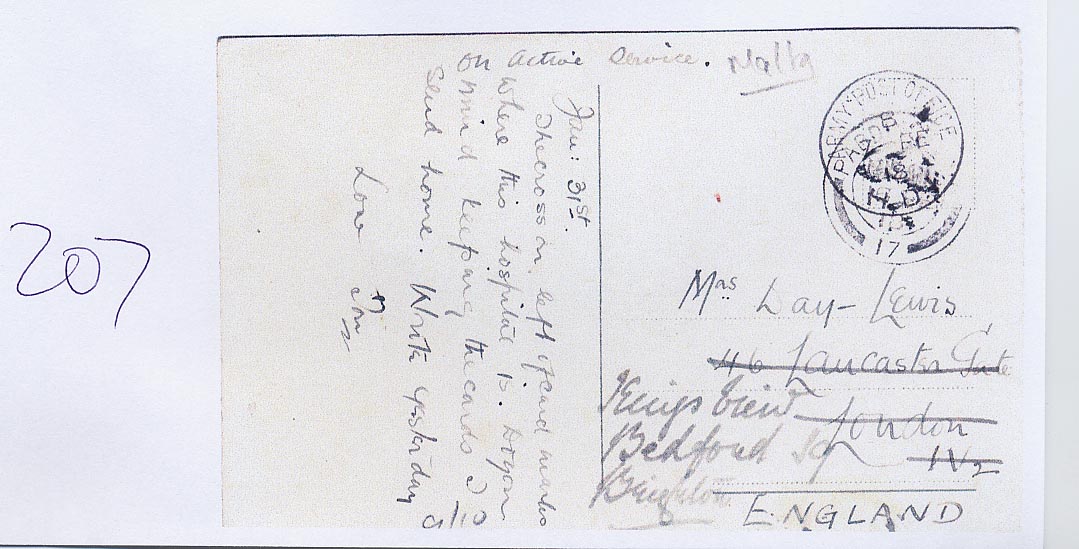 207
on active Service. Malta
Jan: 31st.
The cross on left of card marks
where this hospital is. Do you
mind keeping the cards I
send home. Wrote yesterday
Love
ARMY POST OFFICE
17
Mrs Day-Lewis
46 Lancaster Gate
London
W2
Kings View
Bedford Sq
Brighton
ENGLAND